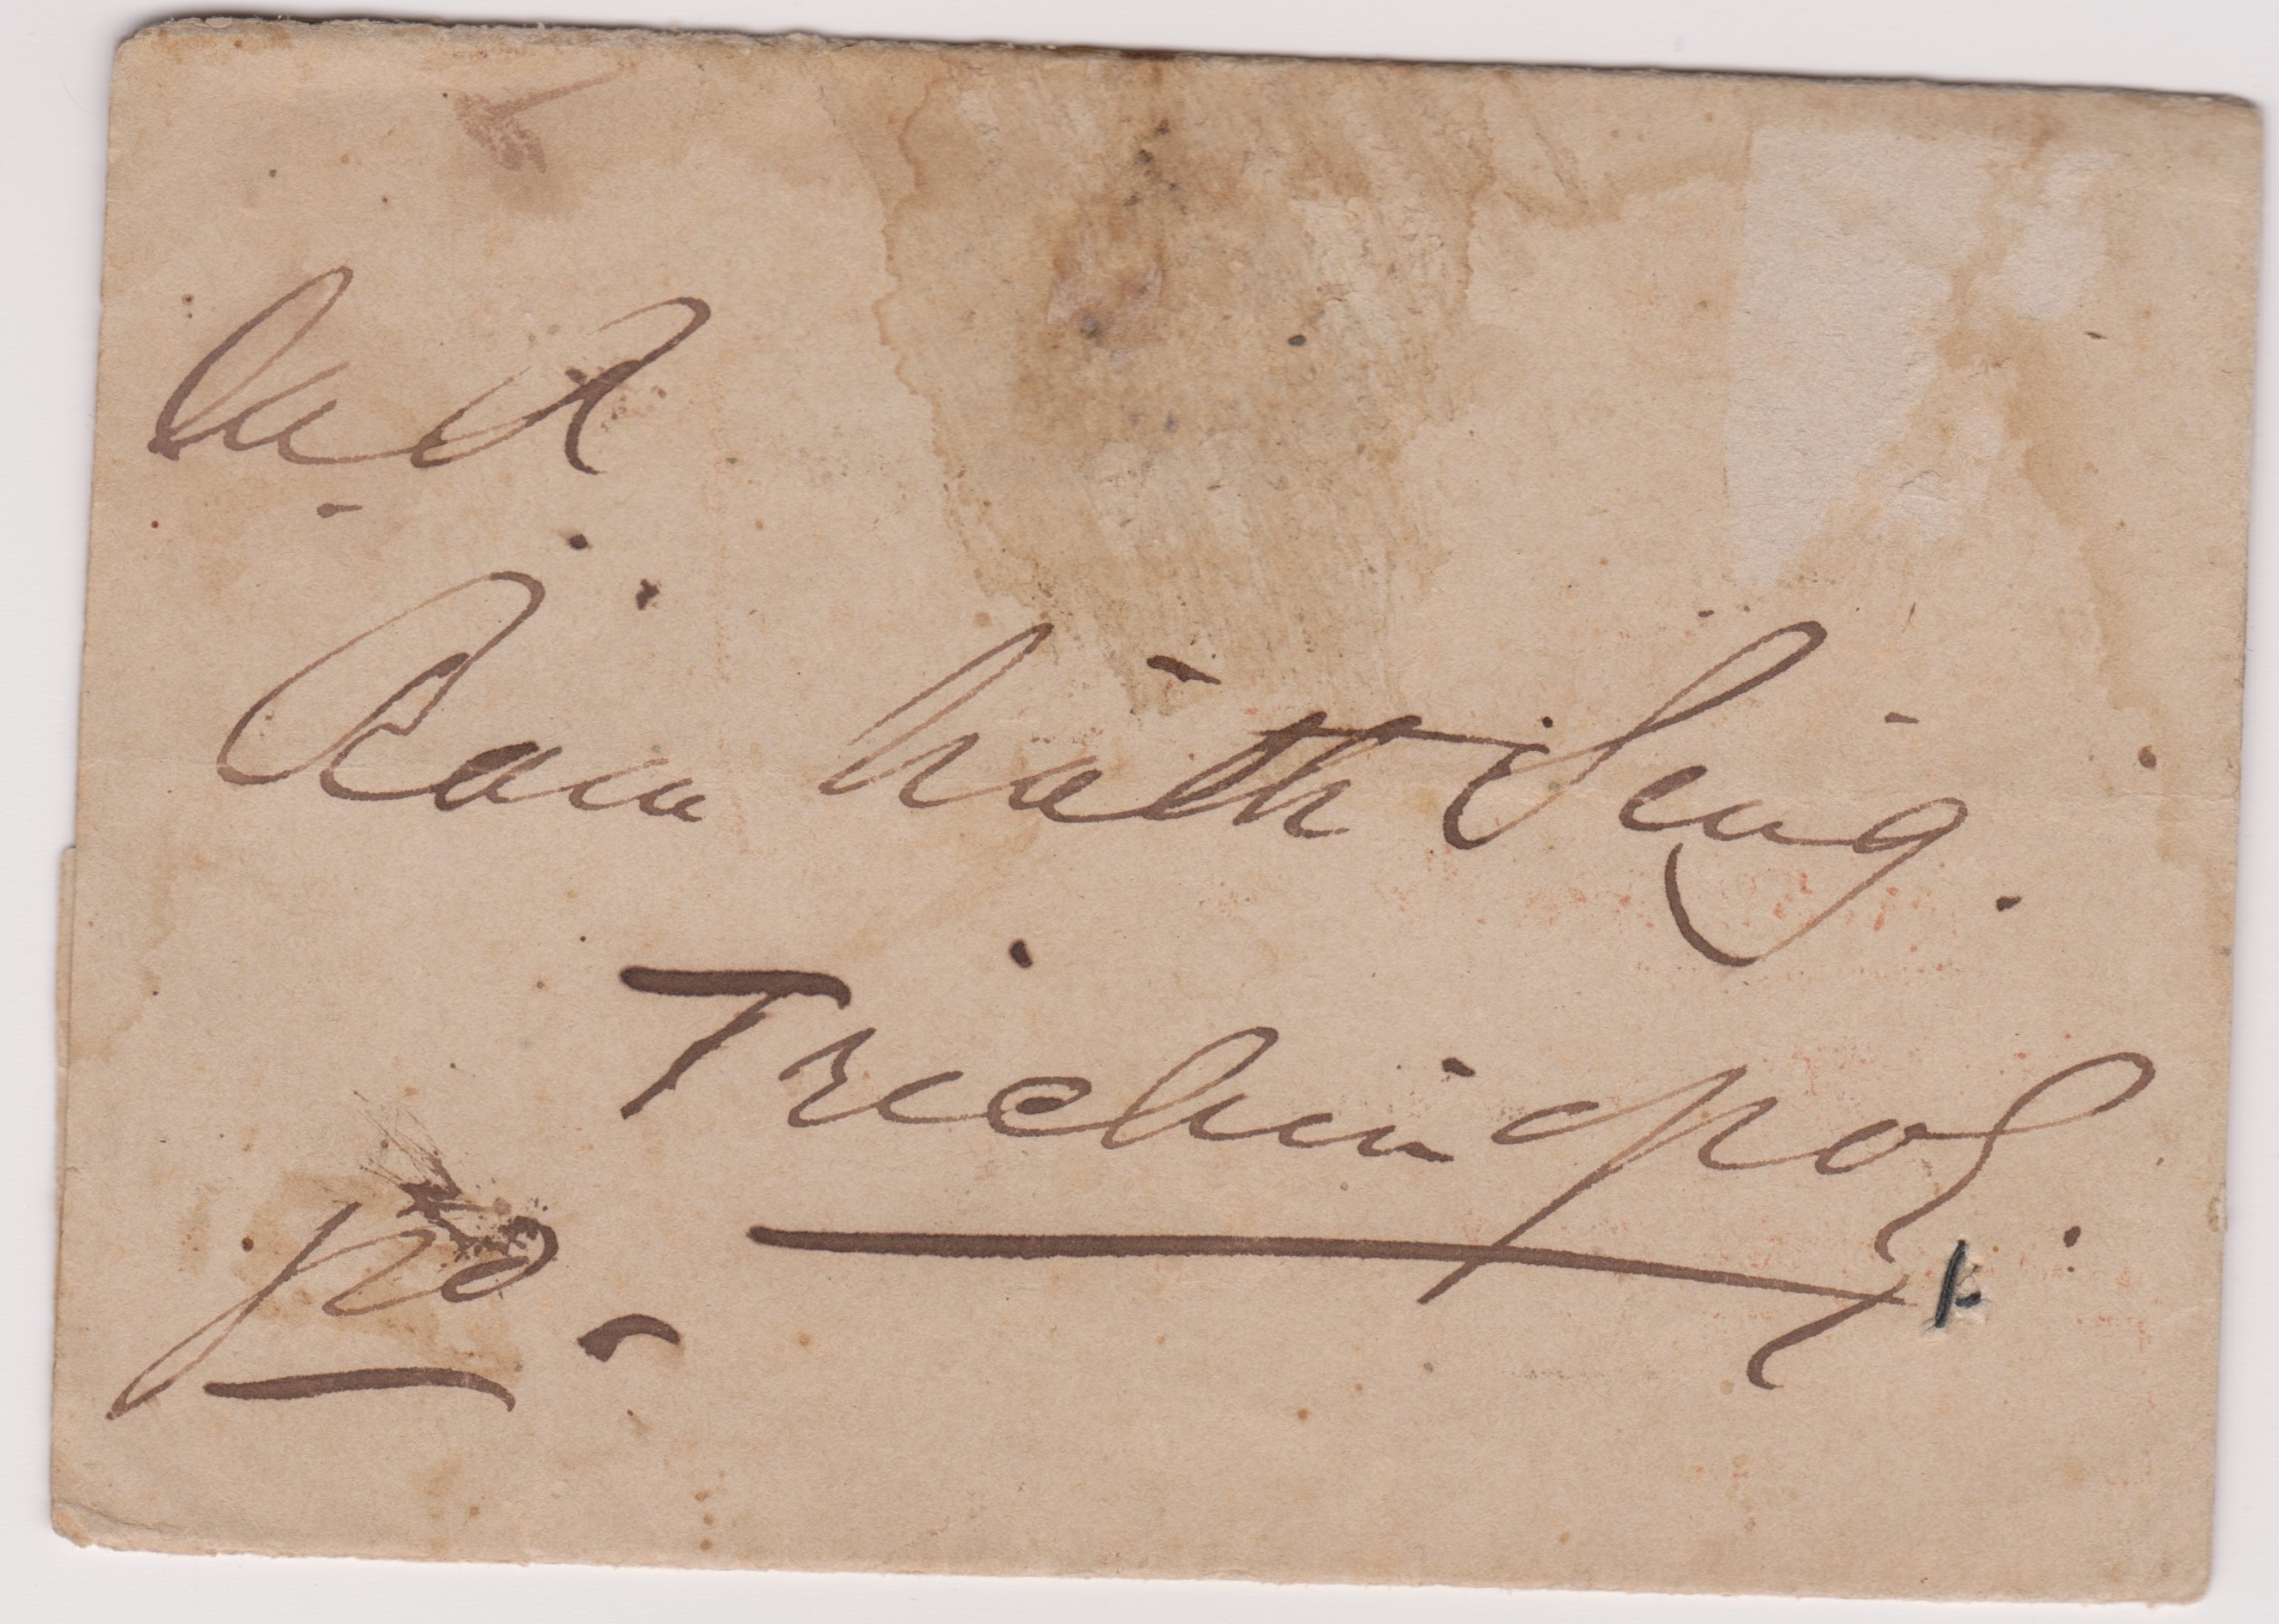 Ram Nath Sing.
Trichinopoly.
pd.